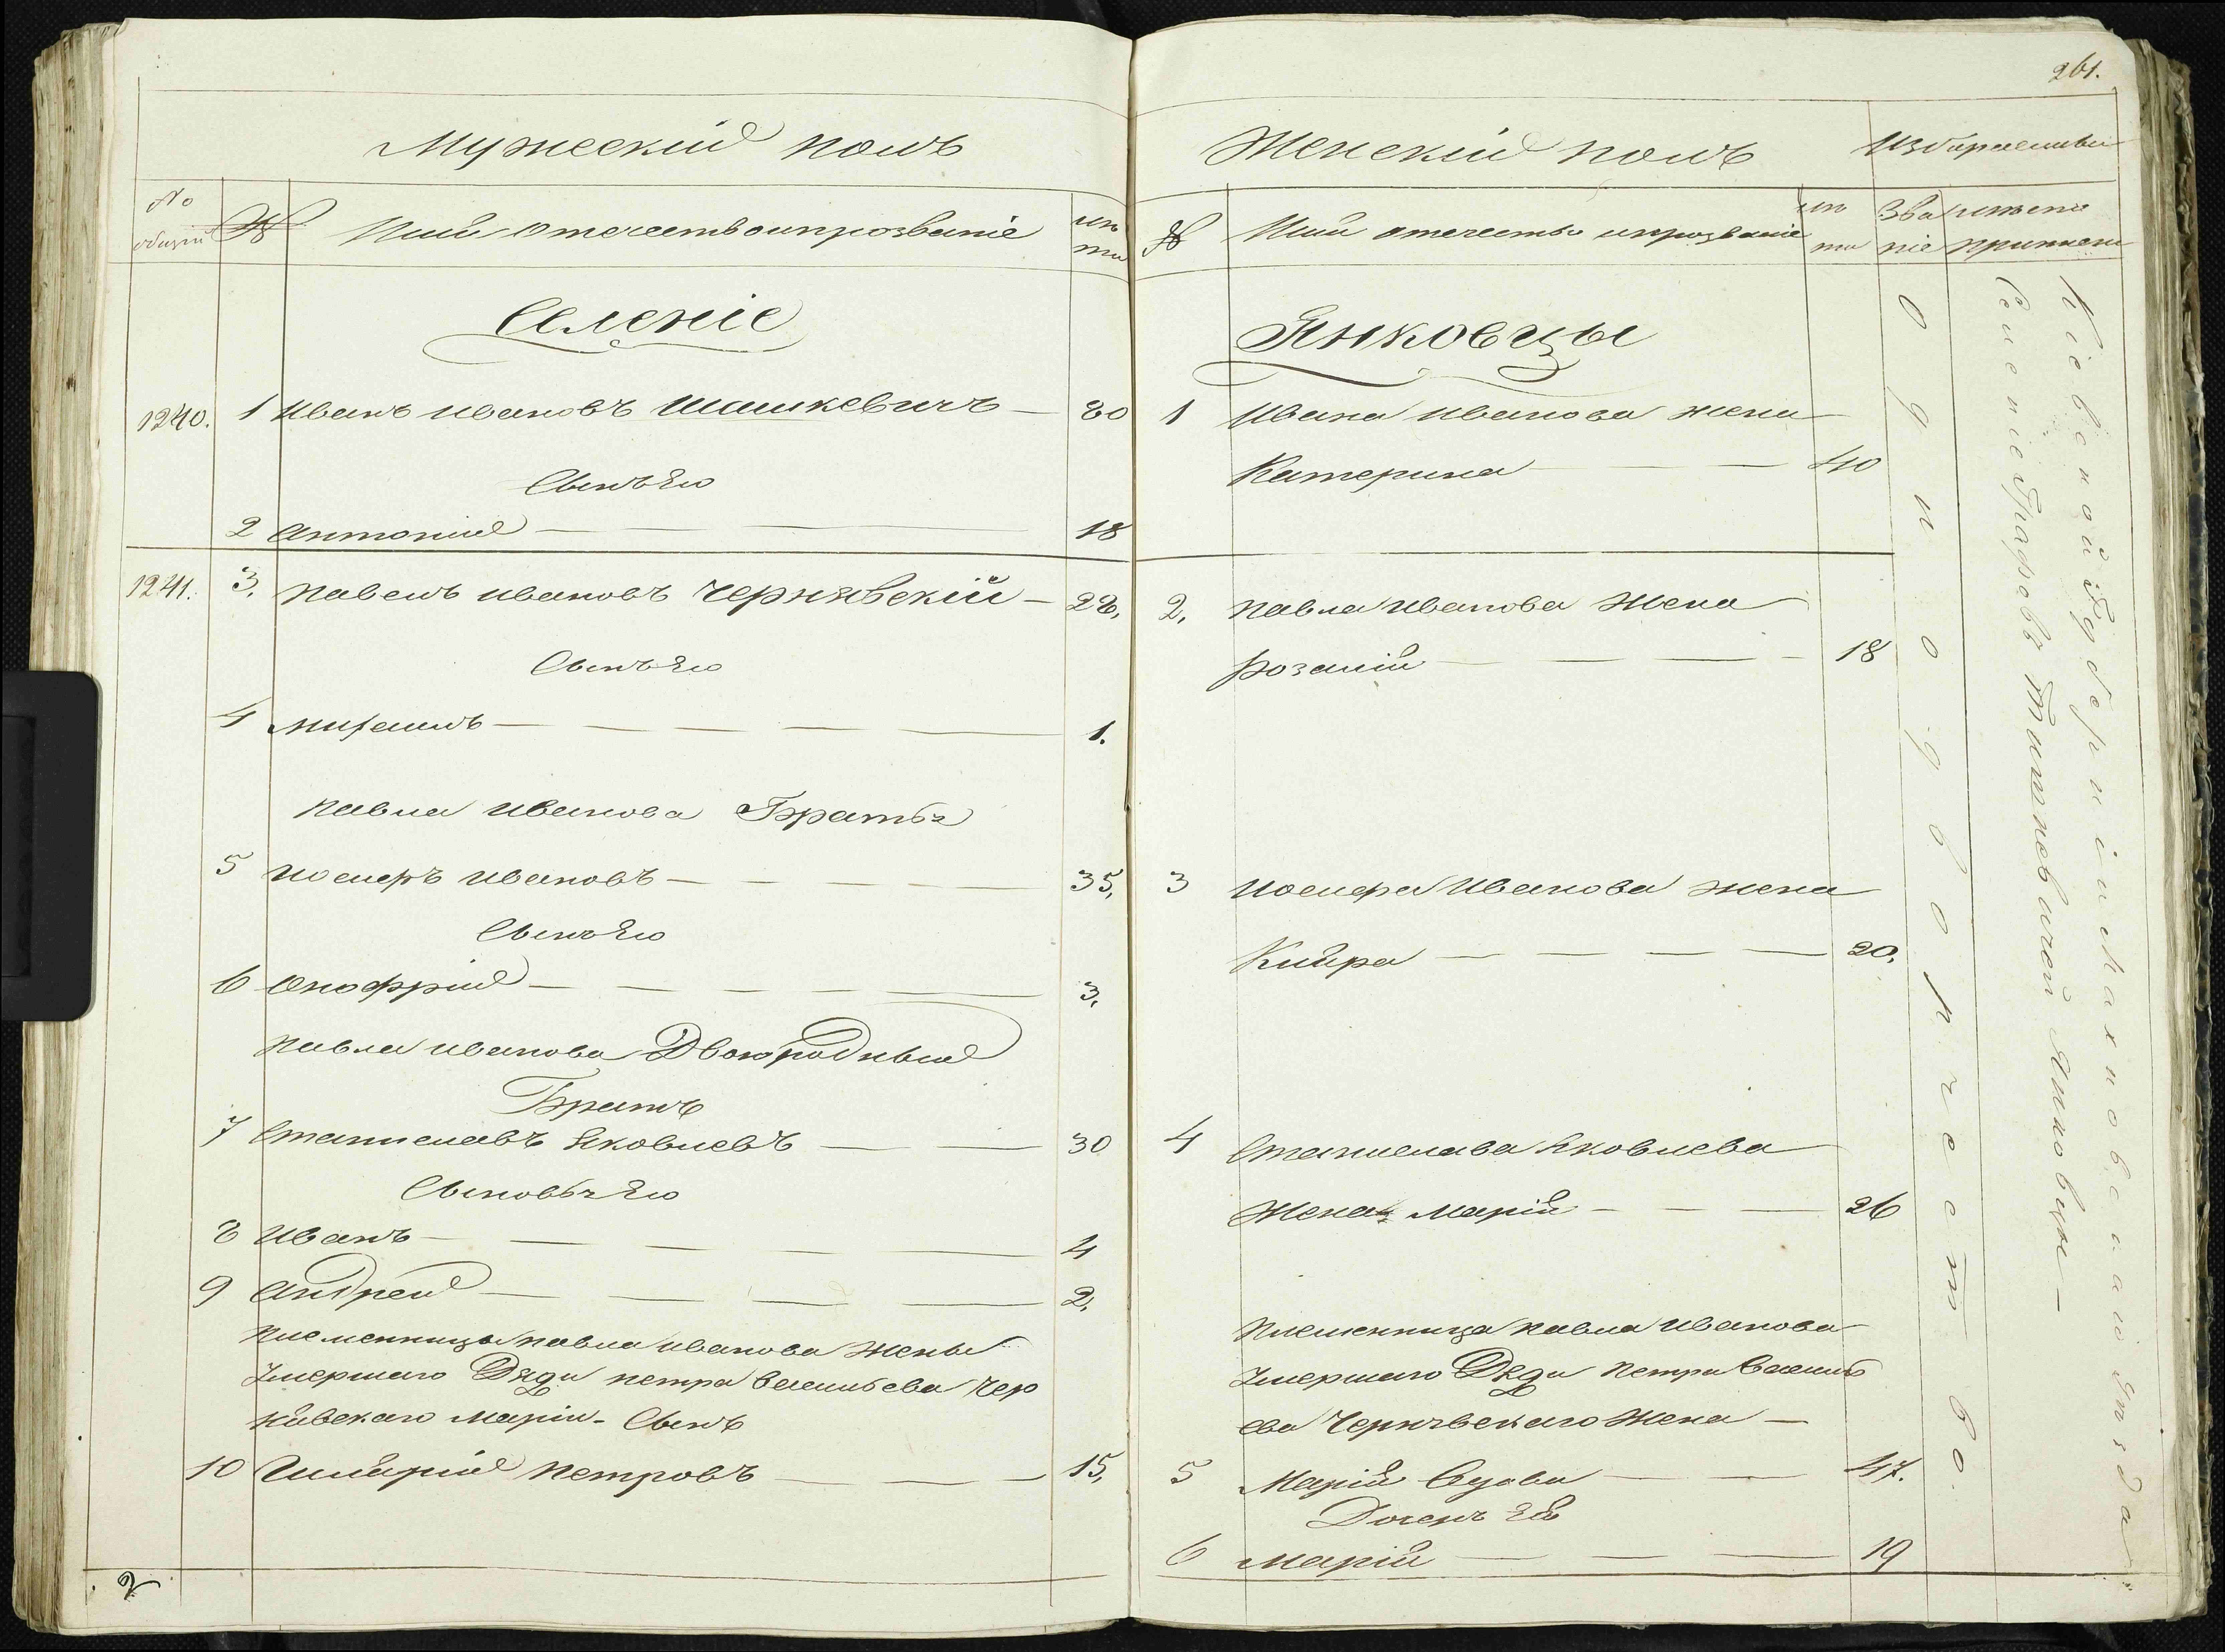 261.
Мужескій полъ
№ общій
№
Имя отечество и прозваніе
лѣта
Селеніе
1240. 1 Иванъ Ивановъ Шашкевичъ — 80
Сынъ Его
2 Антоній — 18
1241. 3. Павелъ Ивановъ Чернявскій — 28,
Сынъ Его
4 Михаилъ — 1.
Павла Иванова Братья
5 Иосифъ Ивановъ — 35,
Сынъ Его
6 Онофрій — 3,
Павла Иванова Двоюродный
Братъ
7 Станиславъ Яковлевъ — 30
Сыновья Его
8 Иванъ — 4
9 Андрей — 2,
Племенницы Павла Иванова Жены
Умершаго Дяди Петра Васильева Чер
нявскаго Маріи - Сынъ
10 Гиларій Петровъ — 15,
2
Женскій полъ
№
Имя отечество и прозваніе
лѣта
Званіе
Янковцы
1 Ивана Иванова жена
Катерина — 40
2, Павла Иванова Жена
Розалія — 18
3 Иосифа Иванова жена
— 20,
4 Станислава Яковлева
Жена Марія — 26
Племенница Павла Иванова
Умершаго Дяди Петра Василь
ева Чернявскаго Жена —
5 Марія — 47.
Дочь Ея
6 Марія — 19
Однодворчество.
Кіевской Губерніи Махновскаго уѣзда
Селеніе Графовъ Янковцы —